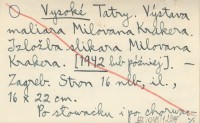 Vysoké Tatry. Výstava
maliara Milovana Krkera.
Izložba slikara Milovana
Krakera. [1942 lub później].—
Zagreb. Stron 16 nlb., il.,
16 x 22 cm.
Po słowacku i po chorwac